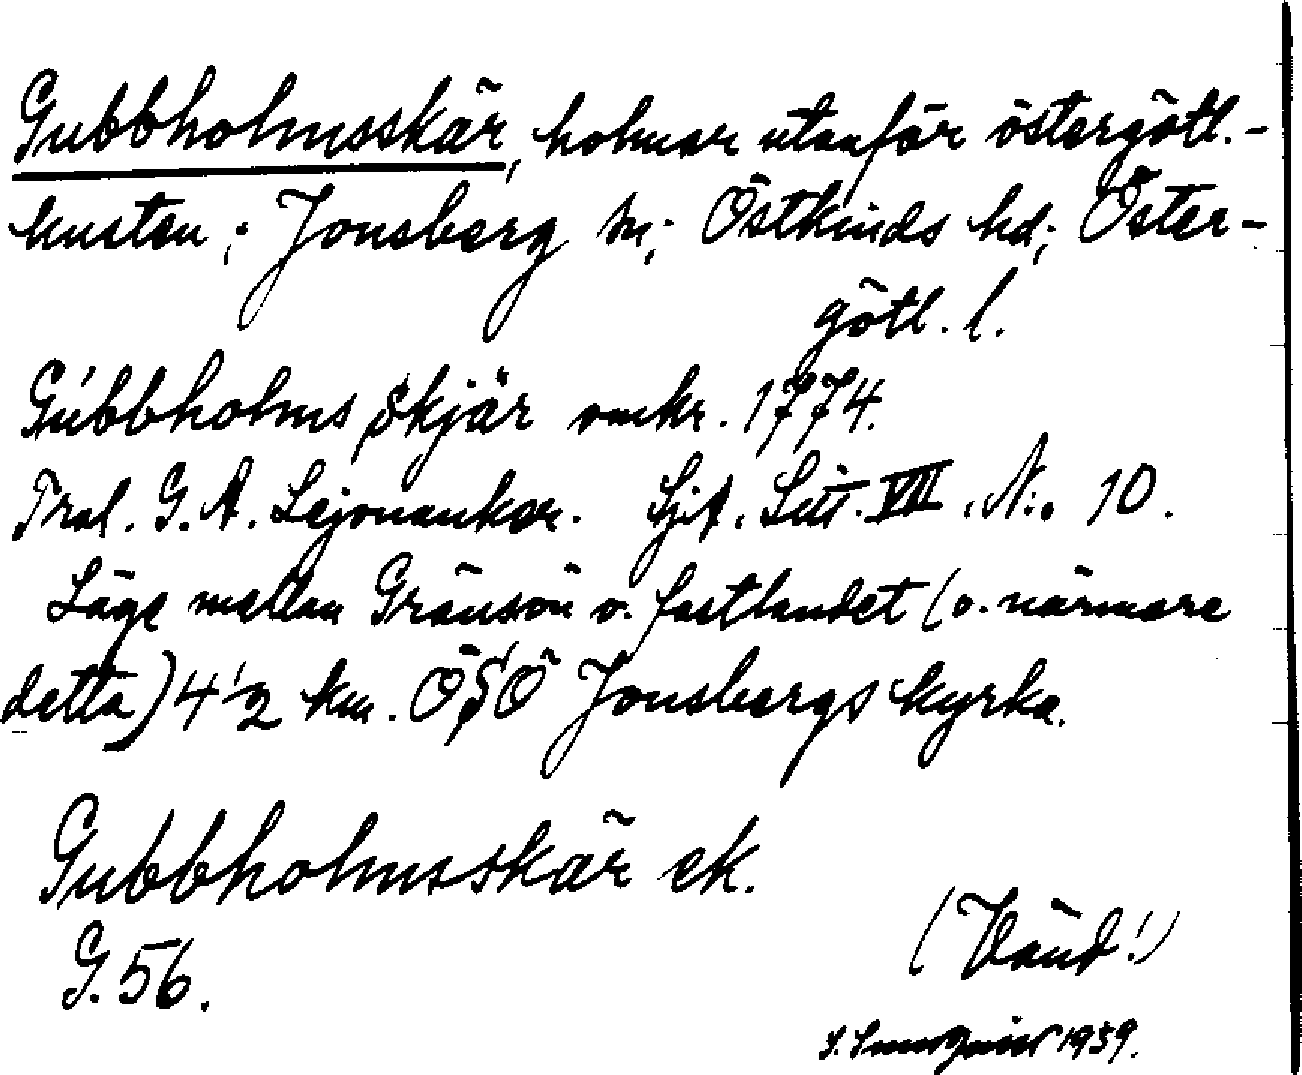 Gubbholmsskär, holmar utanför östergötl.-
kusten; Jonsberg sn; Östkinds hd; Öster-
götl. l.
Gubbholms Skjär omkr. 1774.
Tral. G. A. Lejonankar. Sjö. Litt. VIII. N:o 10.
Läge mellan Gränsön o. fastlandet (o. närmare
detta) 4 1/2 km. ÖSÖ Jonsbergs kyrka.
Gubbholmsskär ek.
G. 56.
(Vänd!)
1939.